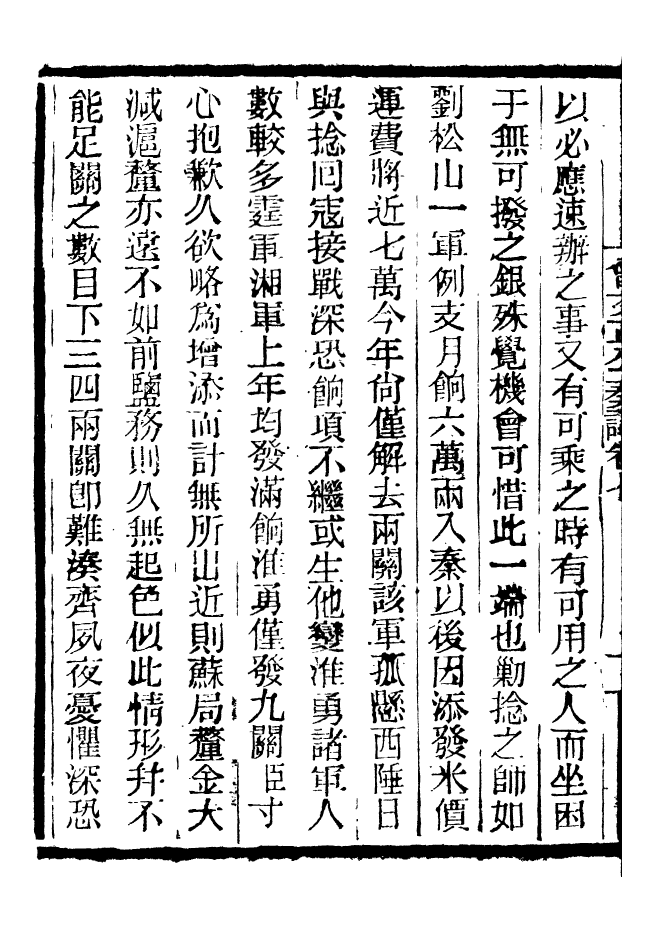 以必應速辦之事又有可乘之時有可用之人而坐困
于無可撥之銀殊覺機會可惜此一端也勦捻之師如
劉松山一軍例支月餉六萬兩入秦以後因添發米價
運費將近七萬今年尙僅解去兩關該軍孤懸西陲日
與捻囘寇接戰深恐餉項不繼或生他變淮勇諸軍人
數較多霆軍湘軍上年均發滿餉淮勇僅發九關臣寸
心抱歉久欲略爲增添而計無所出近則蘇局釐金大
減滬釐亦遠不如前鹽務則久無起色似此情形幷不
能足關之數目下三四兩關卽難湊齊夙夜憂懼深恐